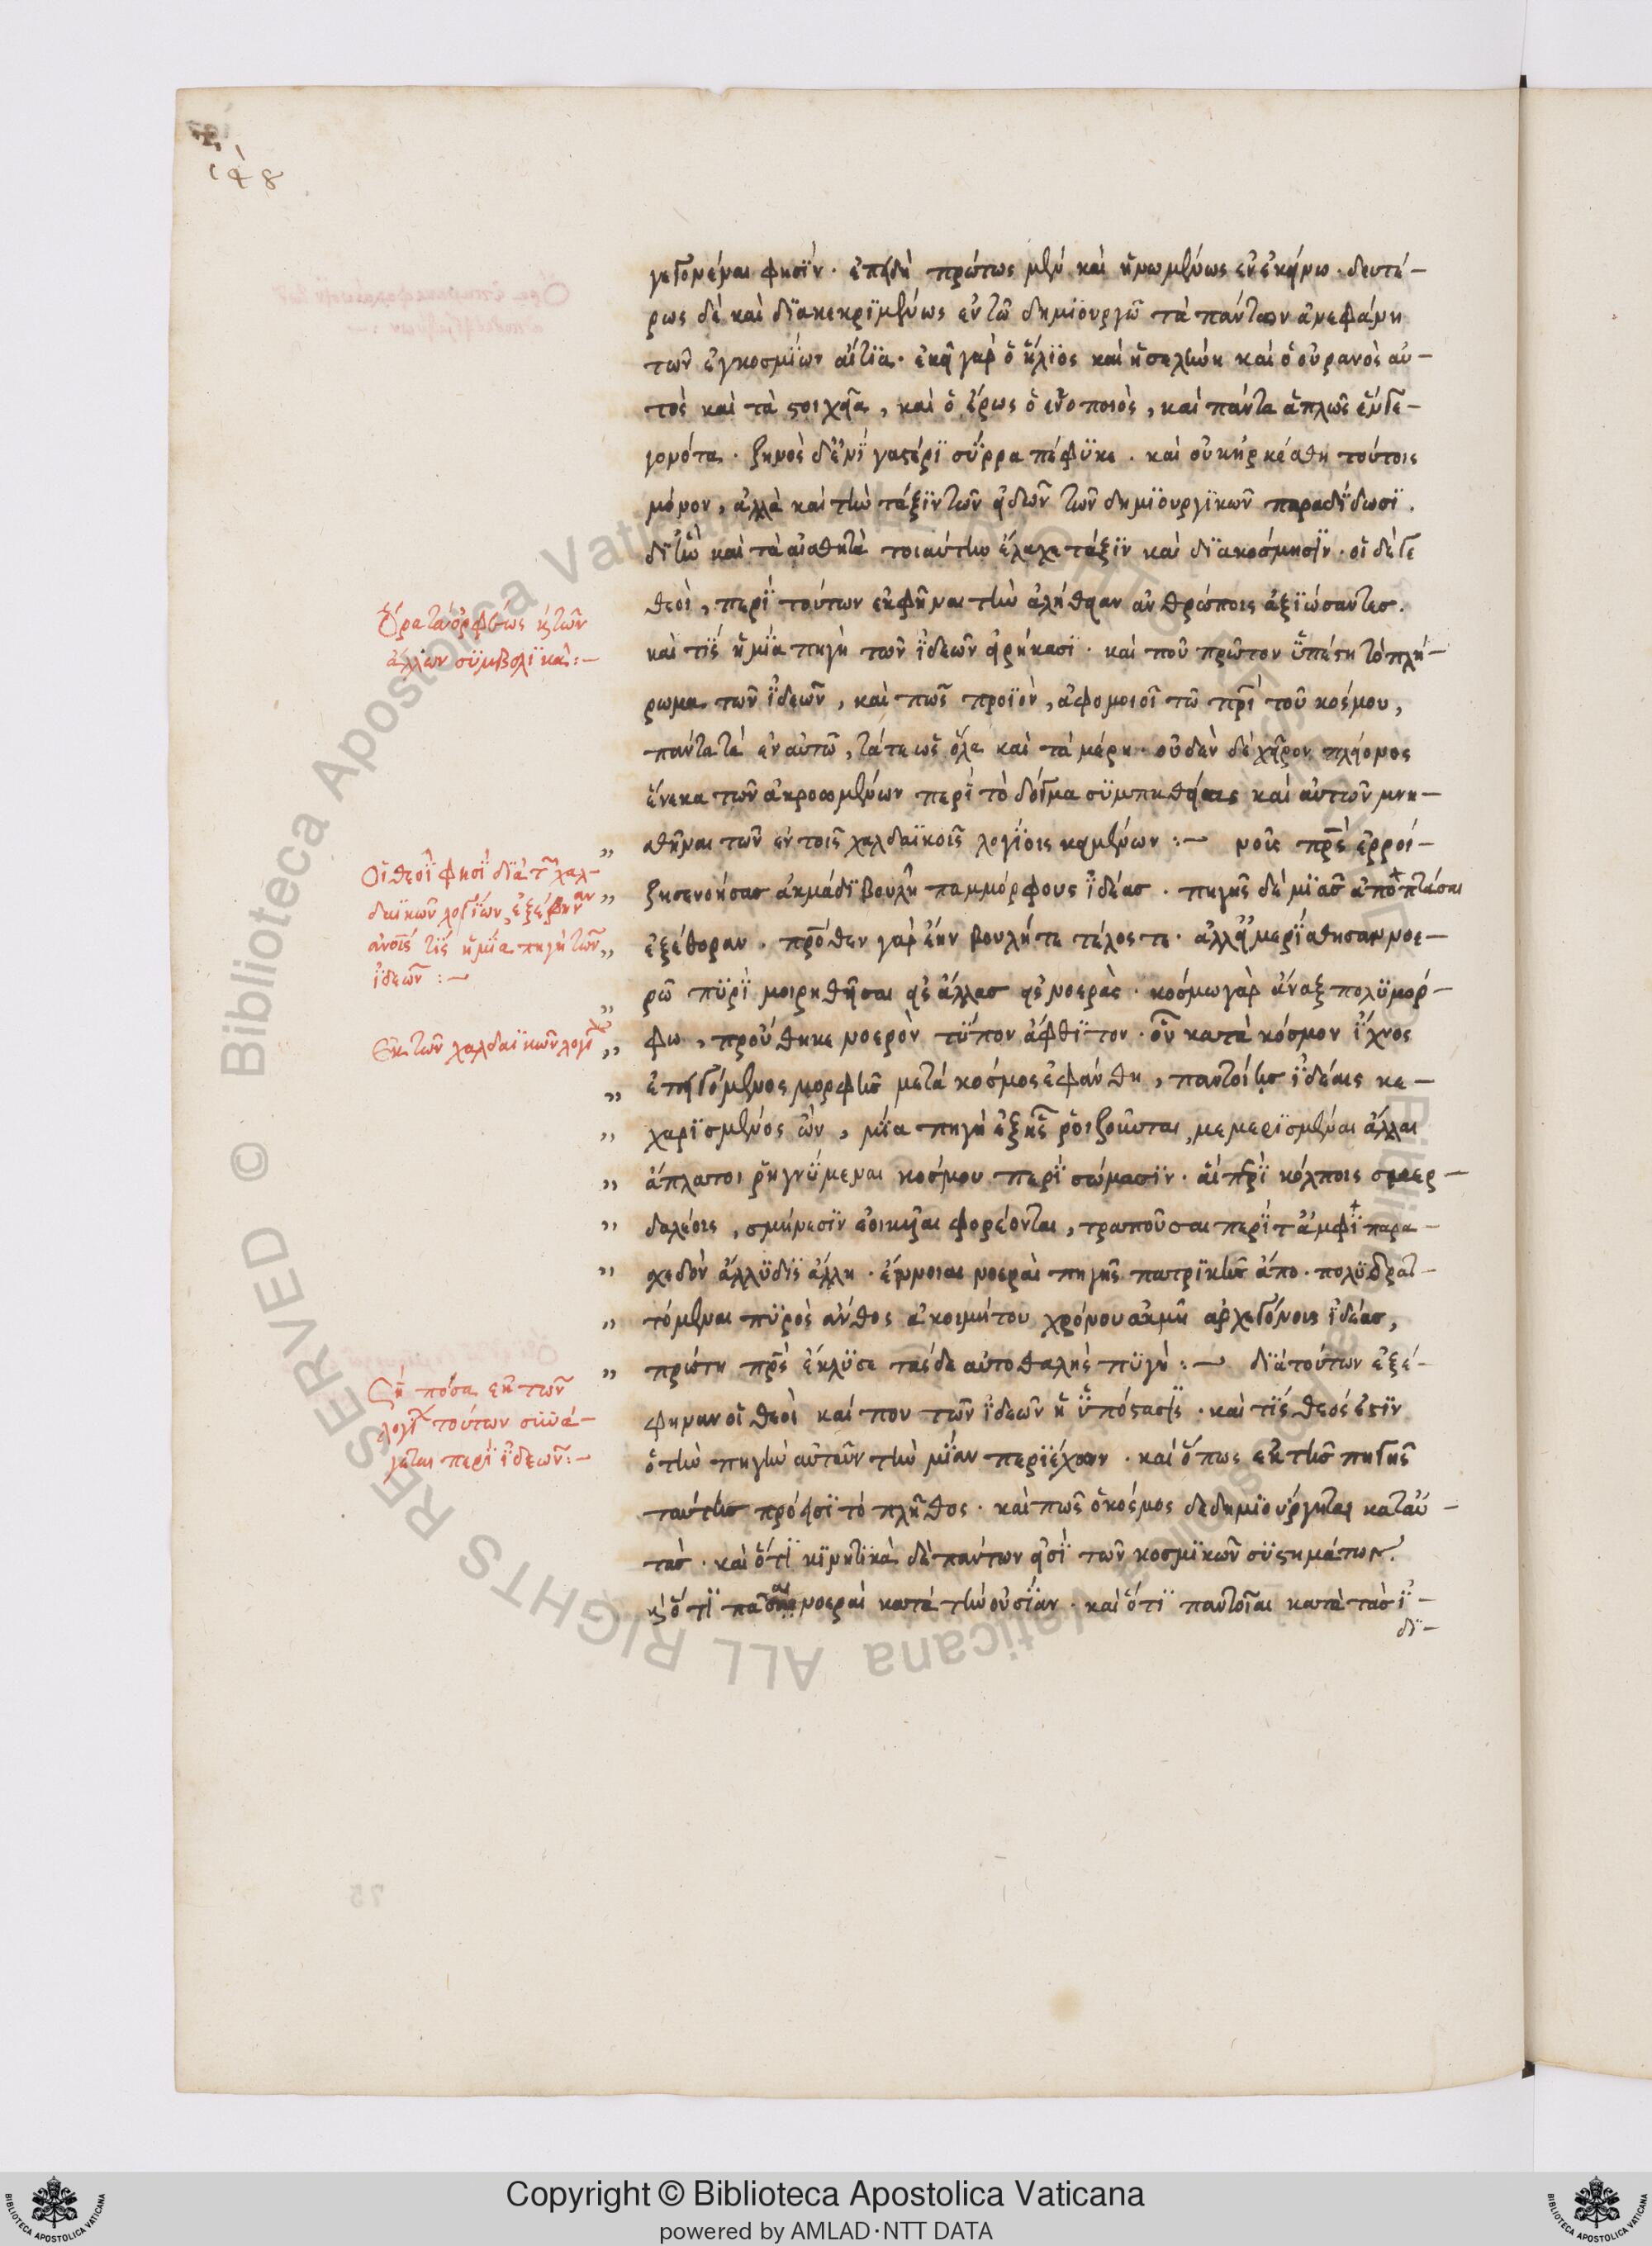 γεγονέναι φησὶν. ἐπειδὴ πρώτως μὲν καὶ ἡνωμένως ἐν ἐκείνω. δευτέ-
ρως δὲ καὶ διακεκριμένως ἐν τῶ δημιουργῶ τὰ πάντων ἀνεφάνη
τῶν ἐγκοσμίων αἴτια. ἐκεῖ γὰρ ὁ ἥλιος καὶ ἡ σελήνη καὶ ὁ οὐρανὸς αὐ-
τὸς καὶ τὰ στοιχεῖα, καὶ ὁ ἔρως ὁ ἑνοποιὸς, καὶ πάντα ἁπλῶς ἓν γε-
γονότα. ζηνὸς δ' ἐνὶ γαστέρι σύρρα πέφυκε. καὶ οὐκ ἠρκέσθη τούτοις
μόνον, ἀλλὰ καὶ τὴν τάξιν τῶν εἰδῶν τῶν δημιουργικῶν παραδίδωσι.
δι' ἣν καὶ τὰ αἰσθητὰ τοιαύτην ἔλαχε τάξιν καὶ διακόσμησιν. οἱ δέ γε
θεοὶ, περὶ τούτων ἐκφῆναι τὴν ἀλήθειαν ἀνθρώποις ἀξιώσαντες.
καὶ τίς ἡ μία πηγὴ τῶν ἰδεῶν εἰρήκασι. καὶ ποῦ πρῶτον ὑπέστη τὸ πλή-
ρωμα τῶν ἰδεῶν, καὶ πῶς προϊὸν, ἀφομοιοῖ τῶ πρὶ τοῦ κόσμου,
πάντα τὰ ἐν αὐτῶ, τά τε ὡς ὅλα καὶ τὰ μέρη. οὐδὲν δὲ χεῖρον πλείονος
ἕνεκα τῶν ἀκροωμένων περὶ τὸ δόγμα συμπαθείας καὶ αὐτῶν μνη-
σθῆναι τῶν ἐν τοῖς χαλδαϊκοῖς λογίοις κειμένων :- νοῦς πρς ἐρροί-
ζησε νοήσας ἀκμάδι βουλῆ παμμόρφους ἰδέας. πηγῆς δὲ μιᾶς ἀποπτᾶσαι
ἐξέθορον. πρόθεν γὰρ ἔην βουλή τε τέλος τε. ἀλλ' ἐμερίσθησαν νοε-
ρῶ πυρὶ μοιρηθεῖσαι εἰς ἄλλας εἰς νοερὰς. κόσμω γὰρ ἄναξ πολυμόρ-
φω, προύθηκε νοερὸν τύπον ἄφθιτον. οὗ κατὰ κόσμον ἴχνος
ἐπειγόμενος μορφῆς μετὰ κόσμος ἐφάνθη, παντοίης ἰδέαις κε-
χαρισμένος ὧν, μία πηγὴ ἐξ ἧς ῥοιζοῦνται, μεμερισμέναι ἄλλαι
ἄπλατοι ῥηγνύμεναι κόσμου περὶ σώμασιν. αἱ περὶ κόλποις σμερ-
δαλέοις, σμήνεσιν ἐοικυῖαι φορέονται, τραποῦσαι περί τ' ἀμφὶ παρα-
σχεδὸν ἄλλυδις ἄλλη. ἔννοιαι νοεραὶ πηγῆς πατρικῆς ἄπο. πολὺ δρατ-
τόμεναι πυρὸς ἄνθος ἀκοιμήτου χρόνου ἀκμῆ ἀρχεγόνοις ἰδέας,
πρώτη πρς ἔκλυσε τάσδε αὐτοθαλὴς πυγὴ :- διὰ τούτων ἐξέ-
φηναν οἱ θεοὶ καὶ που τῶν ἰδεῶν ἡ ὑπόστασις. καὶ τίς θεός ἐστιν
ὁ τὴν πηγὴν αὐτῶν τὴν μίαν περιέχων. καὶ ὅπως ἐκ τῆς πηγῆς
ταύτης πρόεισι τὸ πλῆθος. καὶ πῶς ὁ κόσμος δεδημιούργηται κατ' αὐ-
τὰς. καὶ ὅτι κινητικὰ δὲ πάντων εἰσὶ τῶν κοσμικῶν συστημάτων.
κ ὅτι πᾶσαι νοεραὶ κατὰ τὴν οὐσίαν. καὶ ὅτι παντοῖαι κατὰ τὰς ἰ-
δι-
Ὅρα τὰ ὀρφέως κ τῶν
ἄλλων συμβολικὰ :-
Οἱ θεοὶ φησὶ διὰ τ χαλ-
δαϊκῶν λογίων, ἐξέφηναν
ἀνοις τίς ἡ μία πηγὴ τῶν
ἰδεῶν :-
Ἐκ τῶν χαλδαϊκῶν λογί
πόσα ἐκ τῶν
λογί τούτων συνά-
γεται περὶ ἰδεῶν :-
Copyright © Biblioteca Apostolica Vaticana
powered by AMLAD·NTT DATA
© Biblioteca Apostolica Vaticana ALL RIGHTS RESERVED